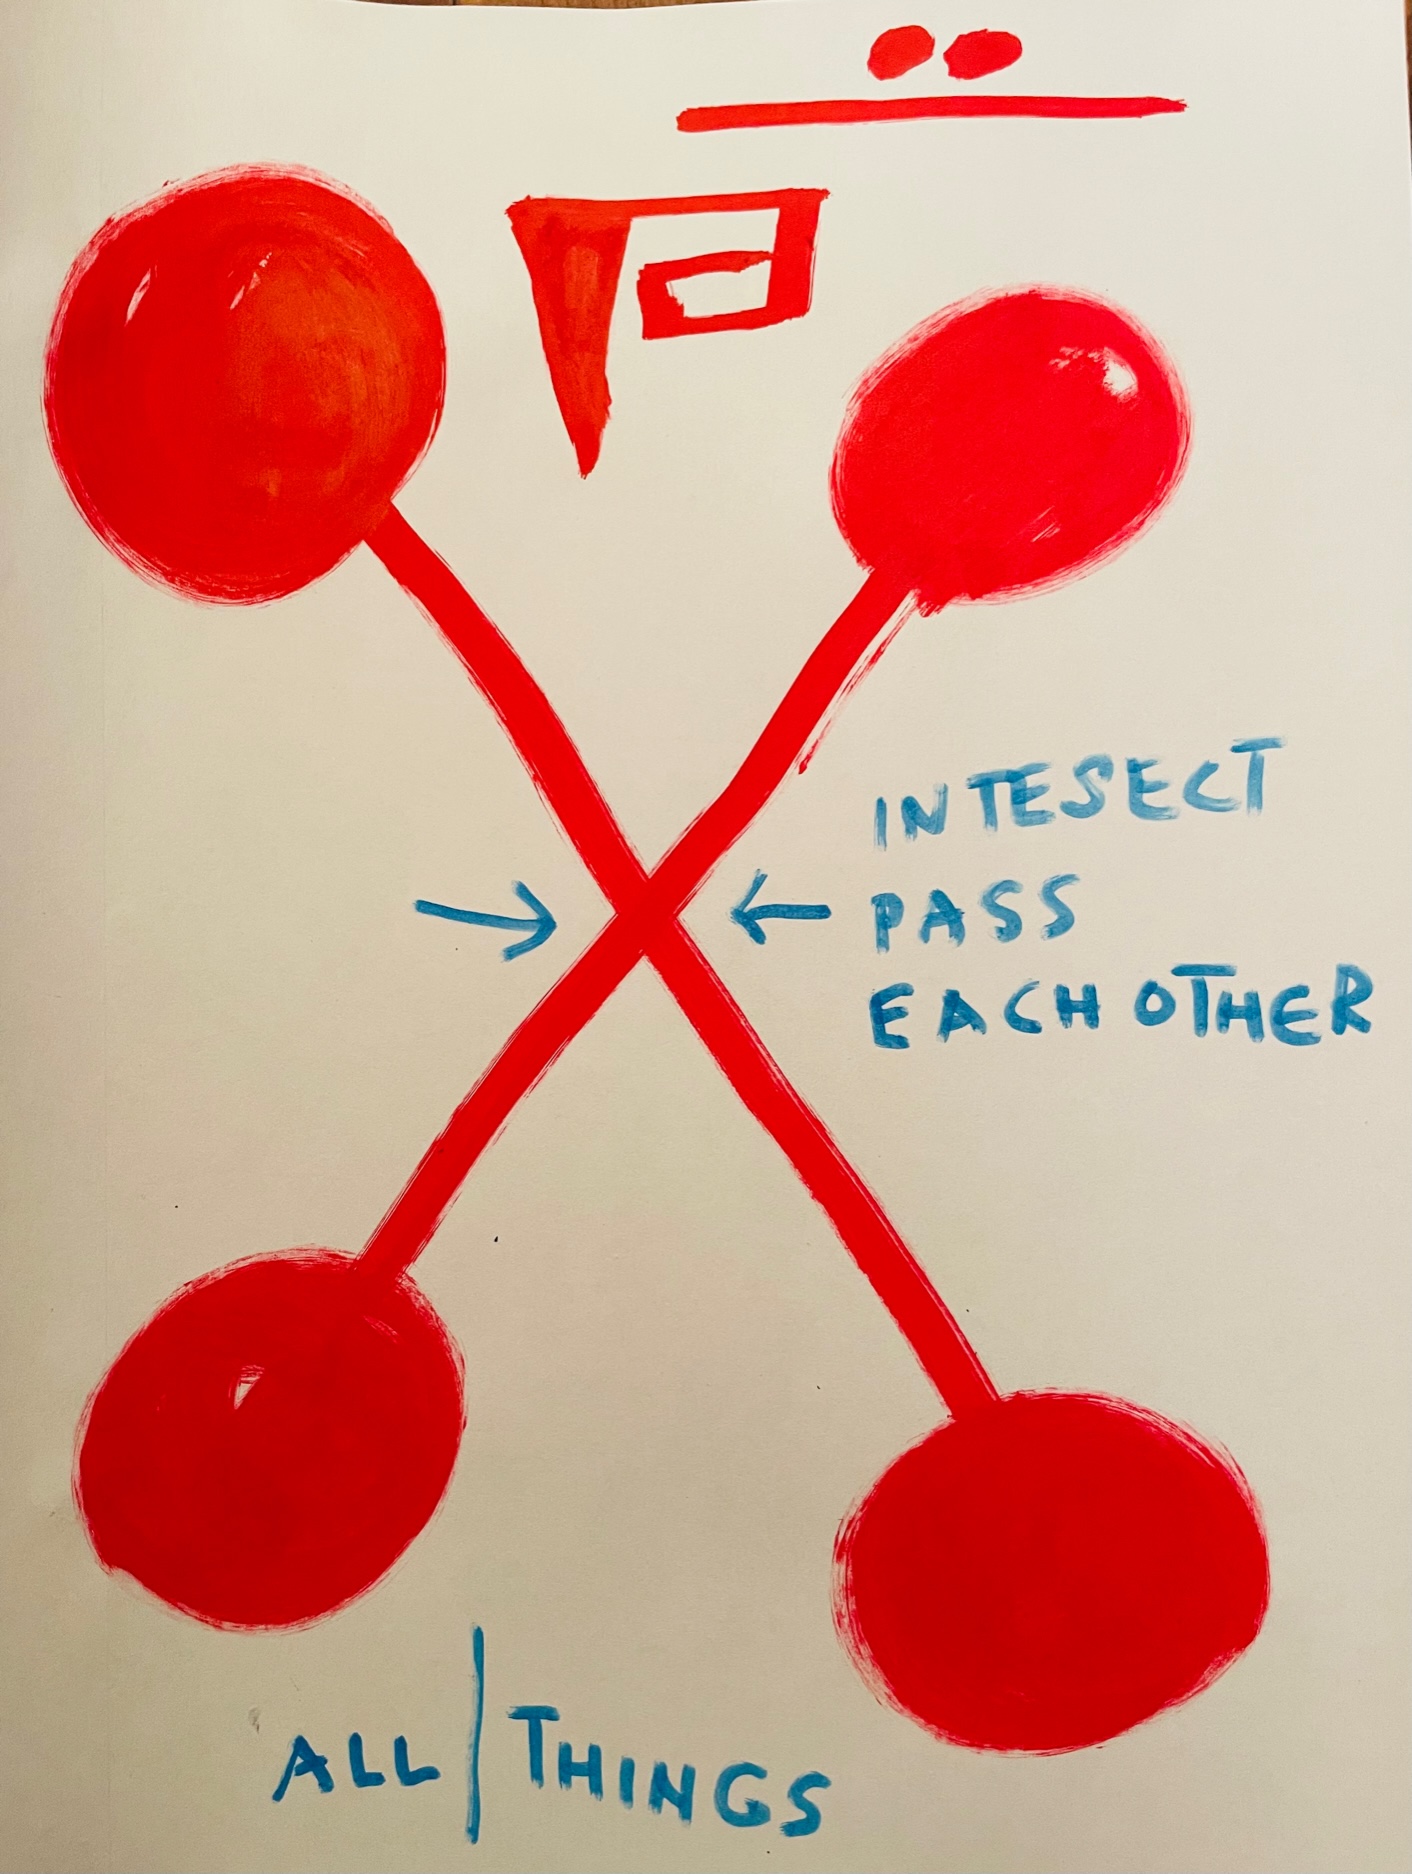 INTESECT
PASS
EACH OTHER
ALL | THINGS